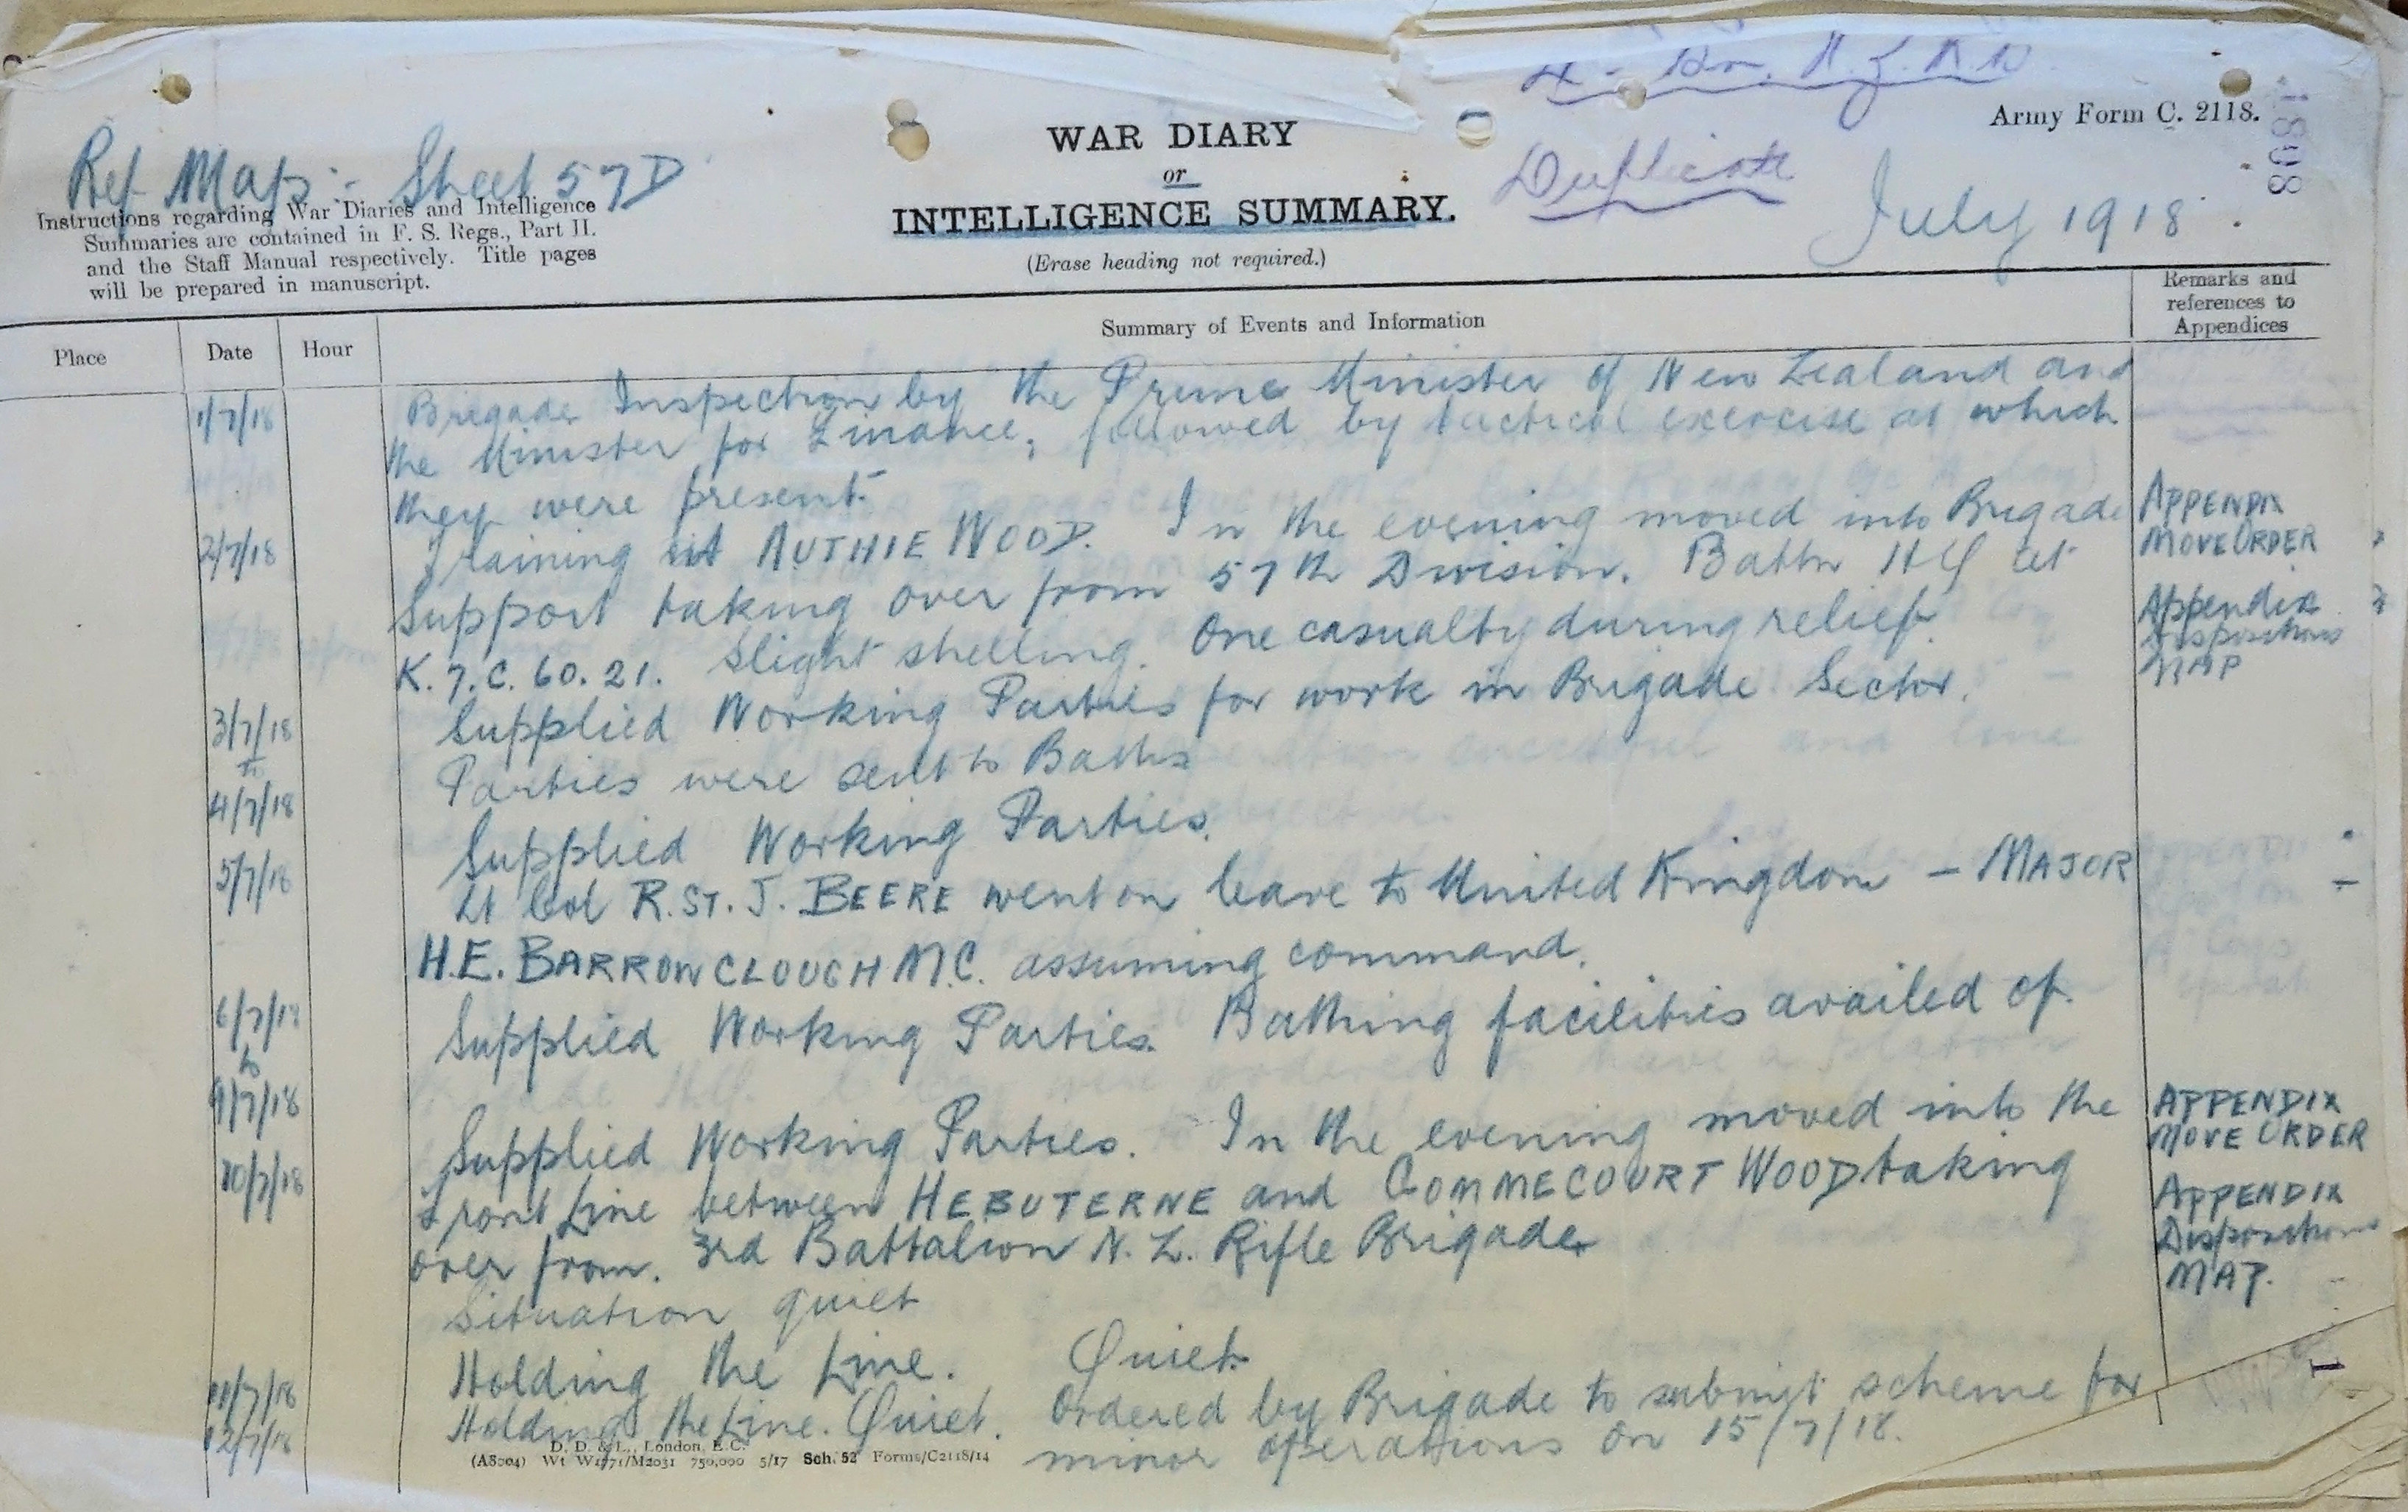 4th Bn. N.Z.R.B.
Army Form C. 2118.
Ref Map :- Sheet 57D
WAR DIARY
or
INTELLIGENCE SUMMARY.
(Erase heading not required.)
Duplicate
July 1918.
Instructions regarding War Diaries and Intelligence
Summaries are contained in F. S. Regs., Part II.
and the Staff Manual respectively. Title pages
will be prepared in manuscript.
Place
Date
Hour
Summary of Events and Information
Remarks and
references to
Appendices
1/7/18 Brigade Inspection by the Prime Minister of New Zealand and
the Minister for Finance, followed by tactical exercise at which
they were present.
2/7/18 Training at AUTHIE WOOD. In the evening moved into Brigade
APPENDIX
MOVE ORDER
Support taking over from 57th Division. Battn HQ at
K.7.C.60.21. Slight shelling. One casualty during relief.
Appendix
Dispositions
MAP
3/7/18 Supplied Working Parties for work in Brigade Sector.
to
4/7/18 Parties were sent to Baths
5/7/18 Supplied Working Parties.
Lt Col R. ST. J. BEERE went on leave to United Kingdom – MAJOR
H.E. BARROWCLOUGH M.C. assuming command.
6/7/18 Supplied Working Parties. Bathing facilities availed of.
to
9/7/18
10/7/18 Supplied Working Parties. In the evening moved into the
APPENDIX
MOVE ORDER
Front Line between HEBUTERNE and GOMMECOURT WOOD taking
over from. 3rd Battalion N.Z. Rifle Brigade.
APPENDIX
Dispositions
MAP.
Situation quiet
11/7/18 Holding the Line. Quiet.
12/7/18 Holding the Line. Quiet. Ordered by Brigade to submit scheme for
minor operations on 15/7/18.
D. D. & L., London, E.C.
(A8004) Wt W1771/M2031 750,000 5/17 Sch. 52 Forms/C2118/14
1